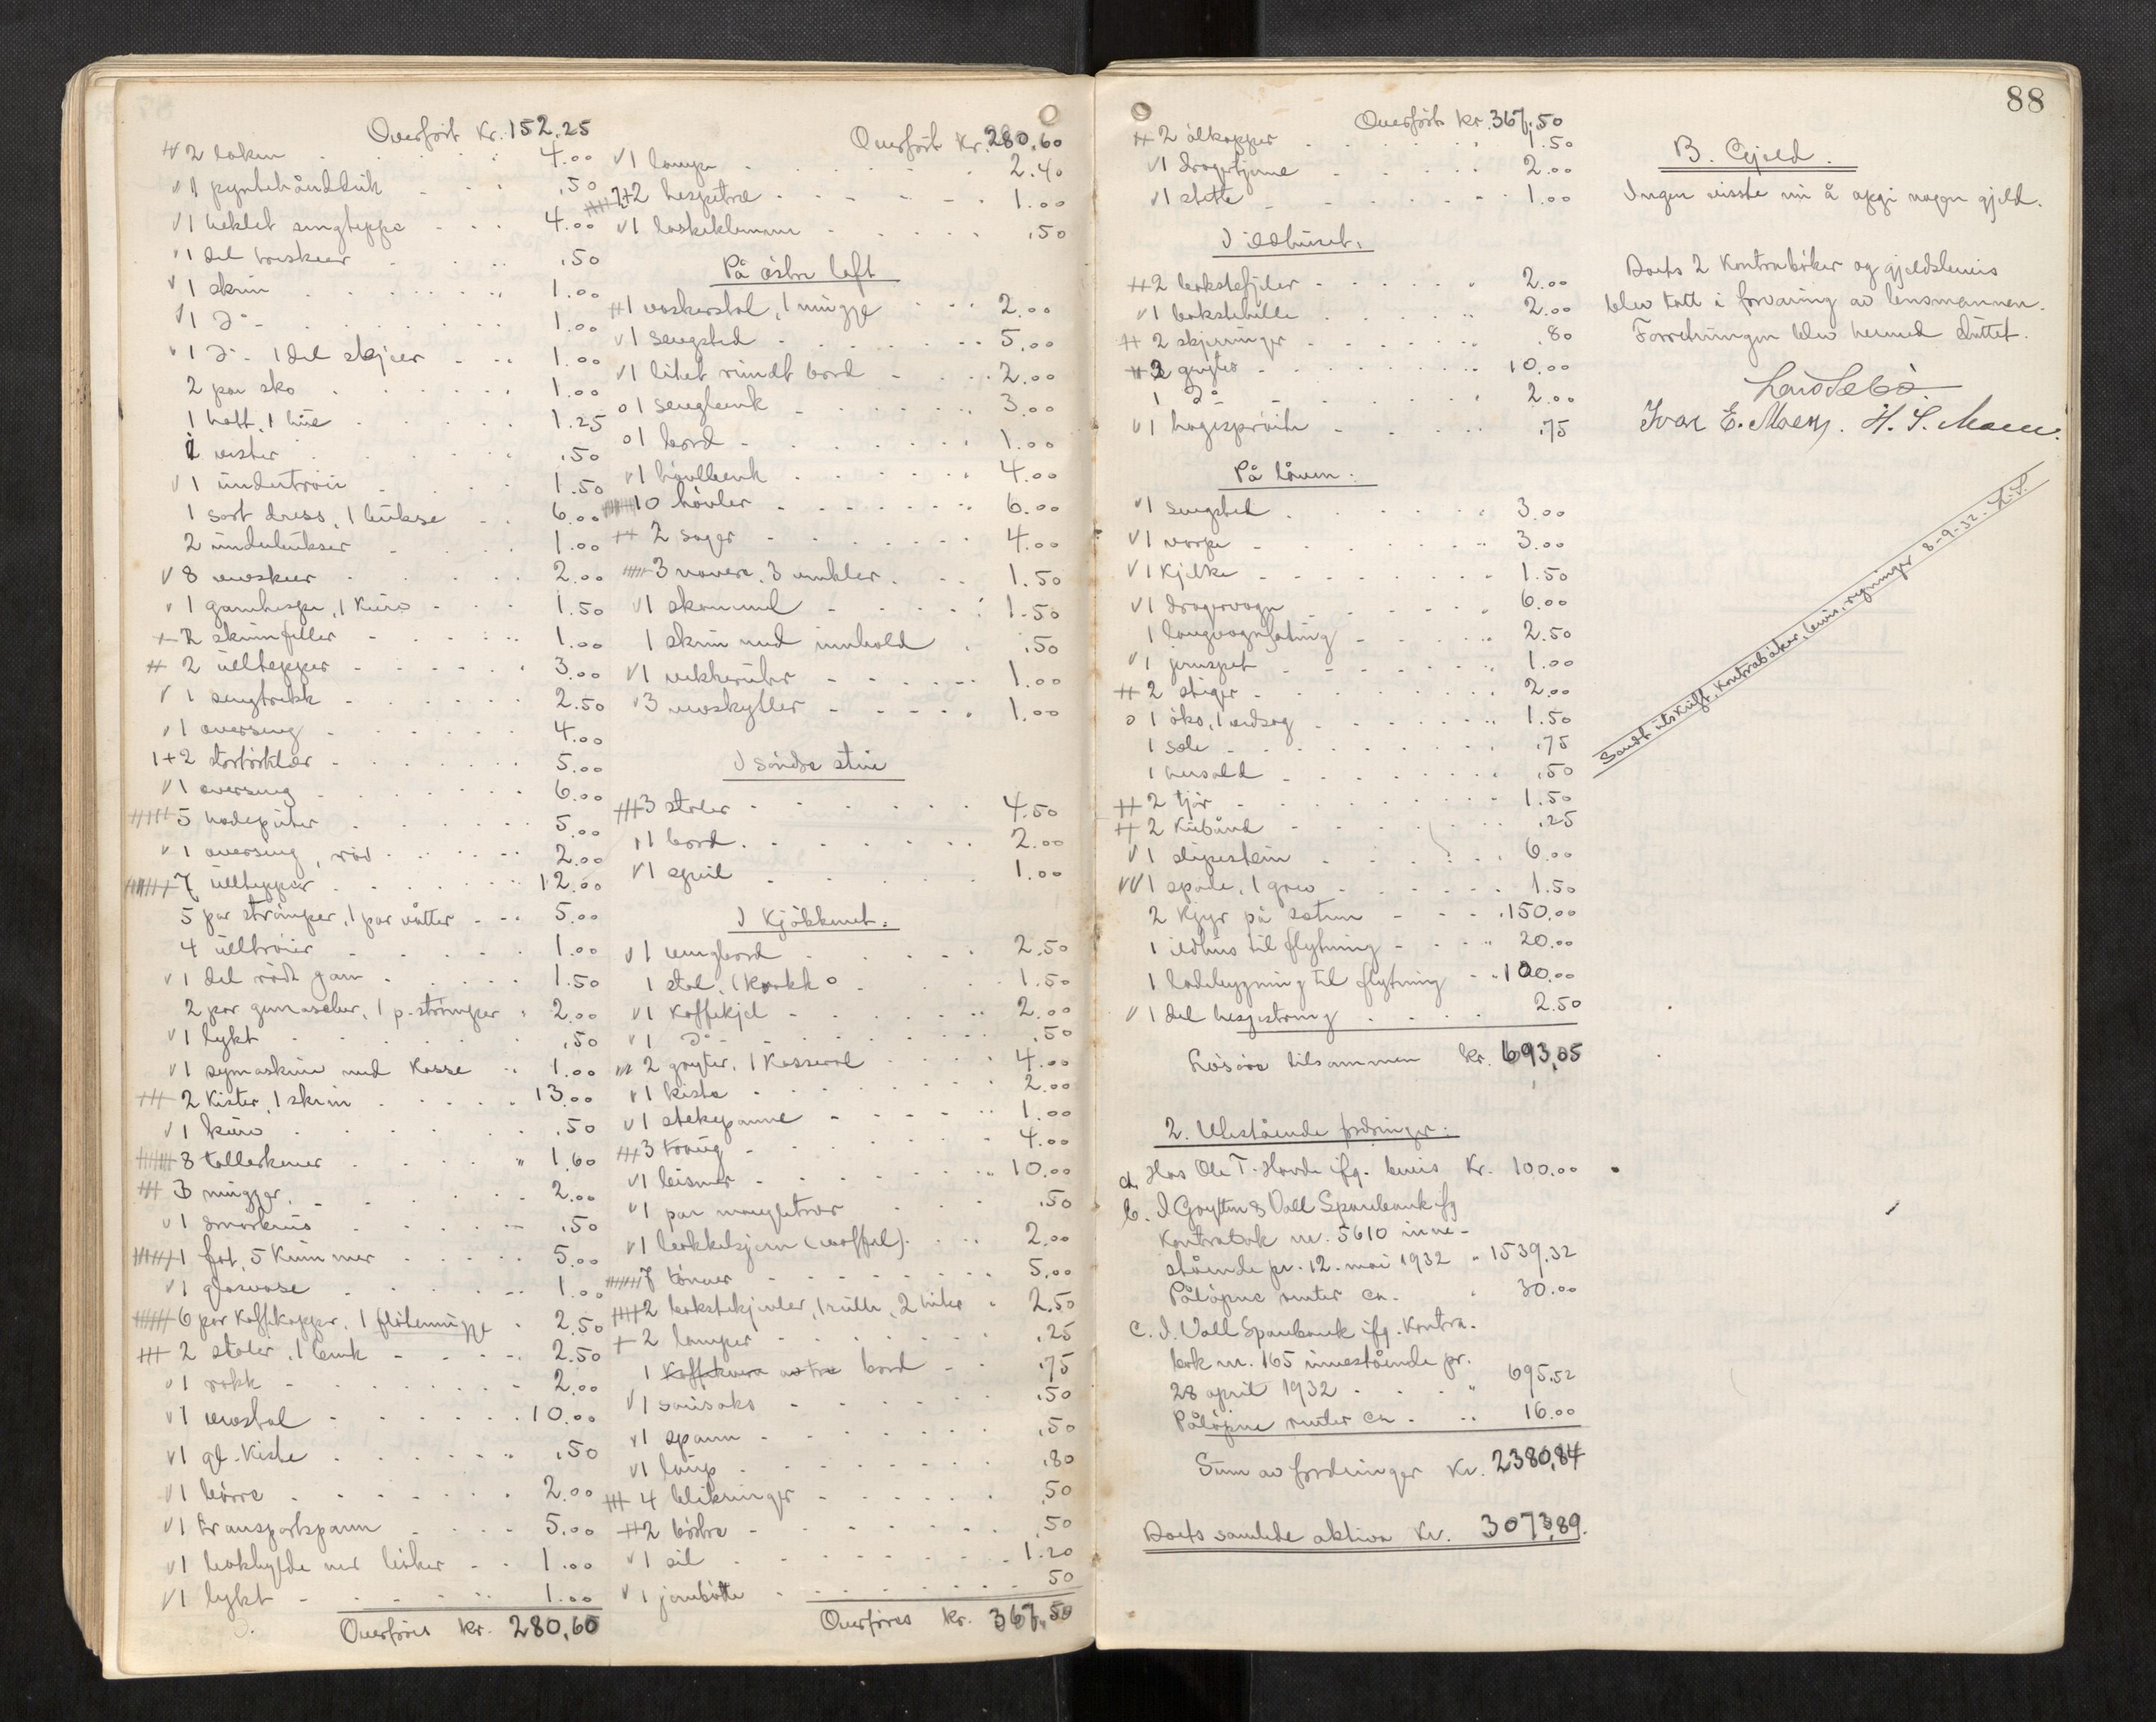 Overført Kr. 152,25
2 laken 4.00
1 pyntehåndduk .50
1 heklet sengteppe 4.00
1 del .50
1 skrin 1.00
1 Do - 1.00
1 Do - 1 del skjeer 1.00
2 par sko 1.00
1 hatt, 1 hue 1.25
2 vester .50
1 undertrøie 1.50
1 sort dress, 1 bukse 6.00
2 underbukser 1.00
8 2.00
1 garnhespe, 1 kurv 1.50
2 skinnfeller 1.00
2 ulltepper 3.00
1 sengtrekk 2.50
1 overseng 4.00
1+2 5.00
1 overseng 6.00
5 hodeputer 5.00
1 overseng, rød 2.00
7 ulltepper 12.00
5 par strømper, 1 par våtter 5.00
4 ulltrøier 1.00
1 del rødt garn 1.50
2 par gamascher, 1 p. strømper 2.00
1 lykt .50
1 symaskine med kasse 1.00
2 kister, 1 skrin 13.00
1 kurv .50
8 tallerkener 1.60
3 mugger 2.00
1 .50
1 fat, 5 kummer 5.00
1 glasvase 1.00
6 par kaffekopper, 1 fløtemugge 2.50
2 stoler, 1 benk 2.50
1 rokk 2.00
1 vevstol 10.00
1 gl. kiste .50
1 børre 2.00
1 transportspann 5.00
1 bokhylde med bøker 1.00
1 lykt 1.00
Overføres kr. 280,60
Overført kr. 280,60
1 lampe 2.40
2 hespetre 1.00
1 .50
På østre loft
1 voskerstol, 1 mugge 2.00
1 sengsted 5.00
1 litet rundt bord 2.00
1 sengbenk 3.00
1 bord 1.00
1 høvlbenk 4.00
10 høvler 6.00
2 sager 4.00
3 navere, 3 vinkler 1.50
1 skammel 1.50
1 skrin med innhold .50
1 vekkerur 1.00
3 vevskytler 1.00
I søndre stue
3 stoler 4.50
1 bord 2.00
1 speil 1.00
I kjøkkenet:
1 vengbord 2.50
1 stol, 1 krakk 1.50
1 kaffekjel 2.00
1 Do - .50
2 gryter, 1 kasserol 4.00
1 kiste 2.00
1 stekepanne 1.00
3 traug 4.00
1 bismer 10.00
1 par mangletrær .50
1 bakkelsjern (vaffel) 2.00
7 tønner 5.00
2 bakstekjevler, 1 rulle, 2 2.50
2 lamper .25
1 bord .75
1 sausaks .50
1 spann .50
1 laup .80
4 blikringer .50
2 bøtter .50
1 sil 1.20
1 jernbøtte 50
Overføres kr. 367,50
88
Overført kr. 367,50
2 ølkopper 1.50
1 2.00
1 støtte 1.00
I ildhuset:
2 bakstefjeler 2.00
1 bakstehelle 2.00
2 skjeringer .80
3 gryter 10.00
1 Do 2.00
1 hagesprøite .75
På låven:
1 sengsted 3.00
1 vogn 3.00
1 kjelke 1.50
1 dragervogn 6.00
1 2.50
1 jernspet 1.00
2 stiger 2.00
1 øks, 1 vedsag 1.50
1 sele .75
1 .50
2 tjør 1.50
2 kubånd .25
1 slipestein 6.00
1 spade, 1 grev 1.50
2 kjyr på setren 150.00
1 ildhus til flytning 20.00
1 ladebygning til flytning 100.00
1 del hesjestreng 2.50
Løsøre tilsammen kr. 693,05
2. Utestående fordringer:
a. Hos Ole T. Hovde ifg. bevis Kr. 100.00
b. I Grytten & Voll Sparebank ifg
Kontrabok nr. 5610 inne-
stående pr. 12. mai 1932 " 1539.32
Påløpne renter ca. 30.00
c. I. Voll Sparebank ifg. kontra-
bok nr. 165 innestående pr.
28 april 1932 " 695.52
Påløpne renter ca. 16.00
Sum av fordringer Kr. 2380,84
Boets samlede aktiva Kr. 3073,89.
B. Gjeld.
Ingen visste nu å opgi nogen gjeld.
Boets 2 kontrabøker og gjeldsbevis
blev tatt i forvaring av lensmannen.
Forretningen blev hermed sluttet.
Lars Sebø.
Ivar E. Moen. H. S. Moen.
Sendt utskrift, kontrabøker, bevis, regninger 8-9-32. L.S.